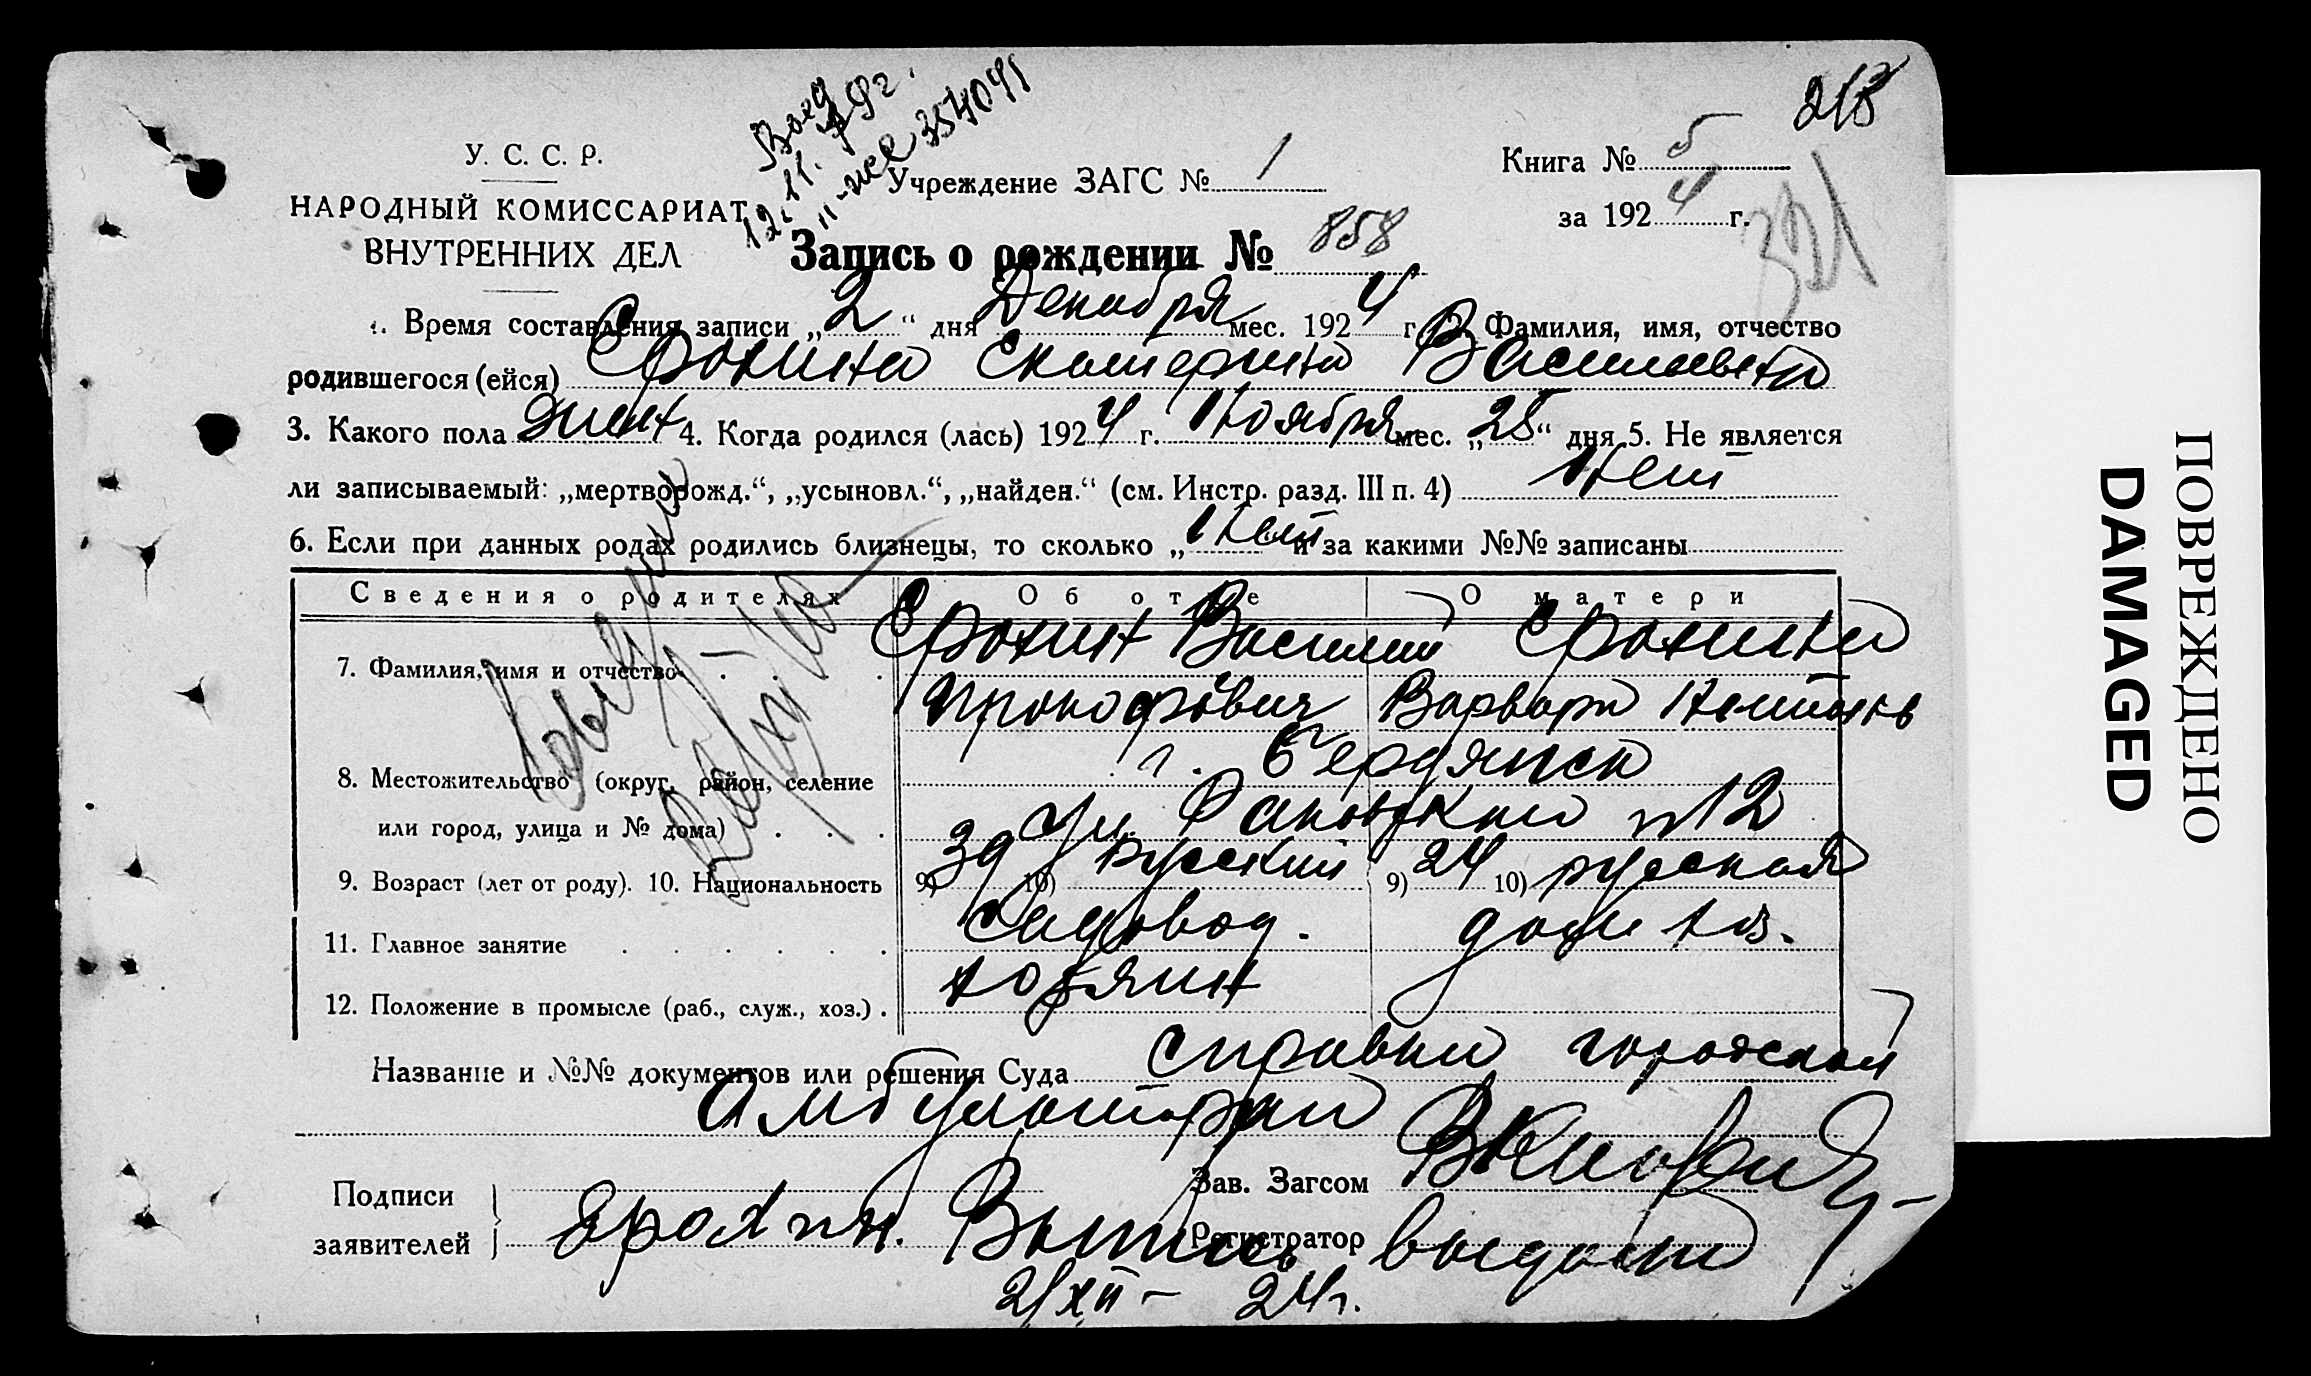 218
У. С. С. Р.
НАРОДНЫЙ КОМИССАРИАТ
ВНУТРЕННИХ ДЕЛ
12.11.
354041
Учреждение ЗАГС № 1
Книга № 5
за 1924 г.
321
Запись о рождении № 858
1. Время составления записи „2“ дня Декабря мес. 1924 г. 2. Фамилия, имя, отчество
родившегося (ейся) Ерохина Екатерина Васильевна
3. Какого пола жен 4. Когда родился (лась) 1924 г. Ноября мес. „25“ дня 5. Не является
ли записываемый: „мертворожд.“, „усыновл.“, „найден.“ (см. Инстр. разд. III п. 4) Нет
6. Если при данных родах родились близнецы, то сколько „Нет и за какими №№ записаны
Сведения о родителях Об отце О матери
7. Фамилия, имя и отчество Ерохин Василий Ерохина
Прокофьевич Варвара
8. Местожительство (округ, район, селение г. Бердянск
или город, улица и № дома) ул. №12
9. Возраст (лет от роду). 10. Национальность 9) 39 10) русский 9) 24 10) русская
11. Главное занятие садовод. дом. хоз.
12. Положение в промысле (раб., служ., хоз.) хозяин
Название и №№ документов или решения Суда справка городской
Амбулатории
Подписи
заявителей
Ерохин.
Зав. Загсом
Регистратор
Выпись выдана
2/XII – 24г.
ПОВРЕЖДЕНО
DAMAGED